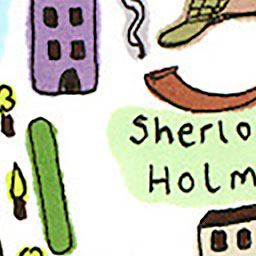 Sherlo
Holm